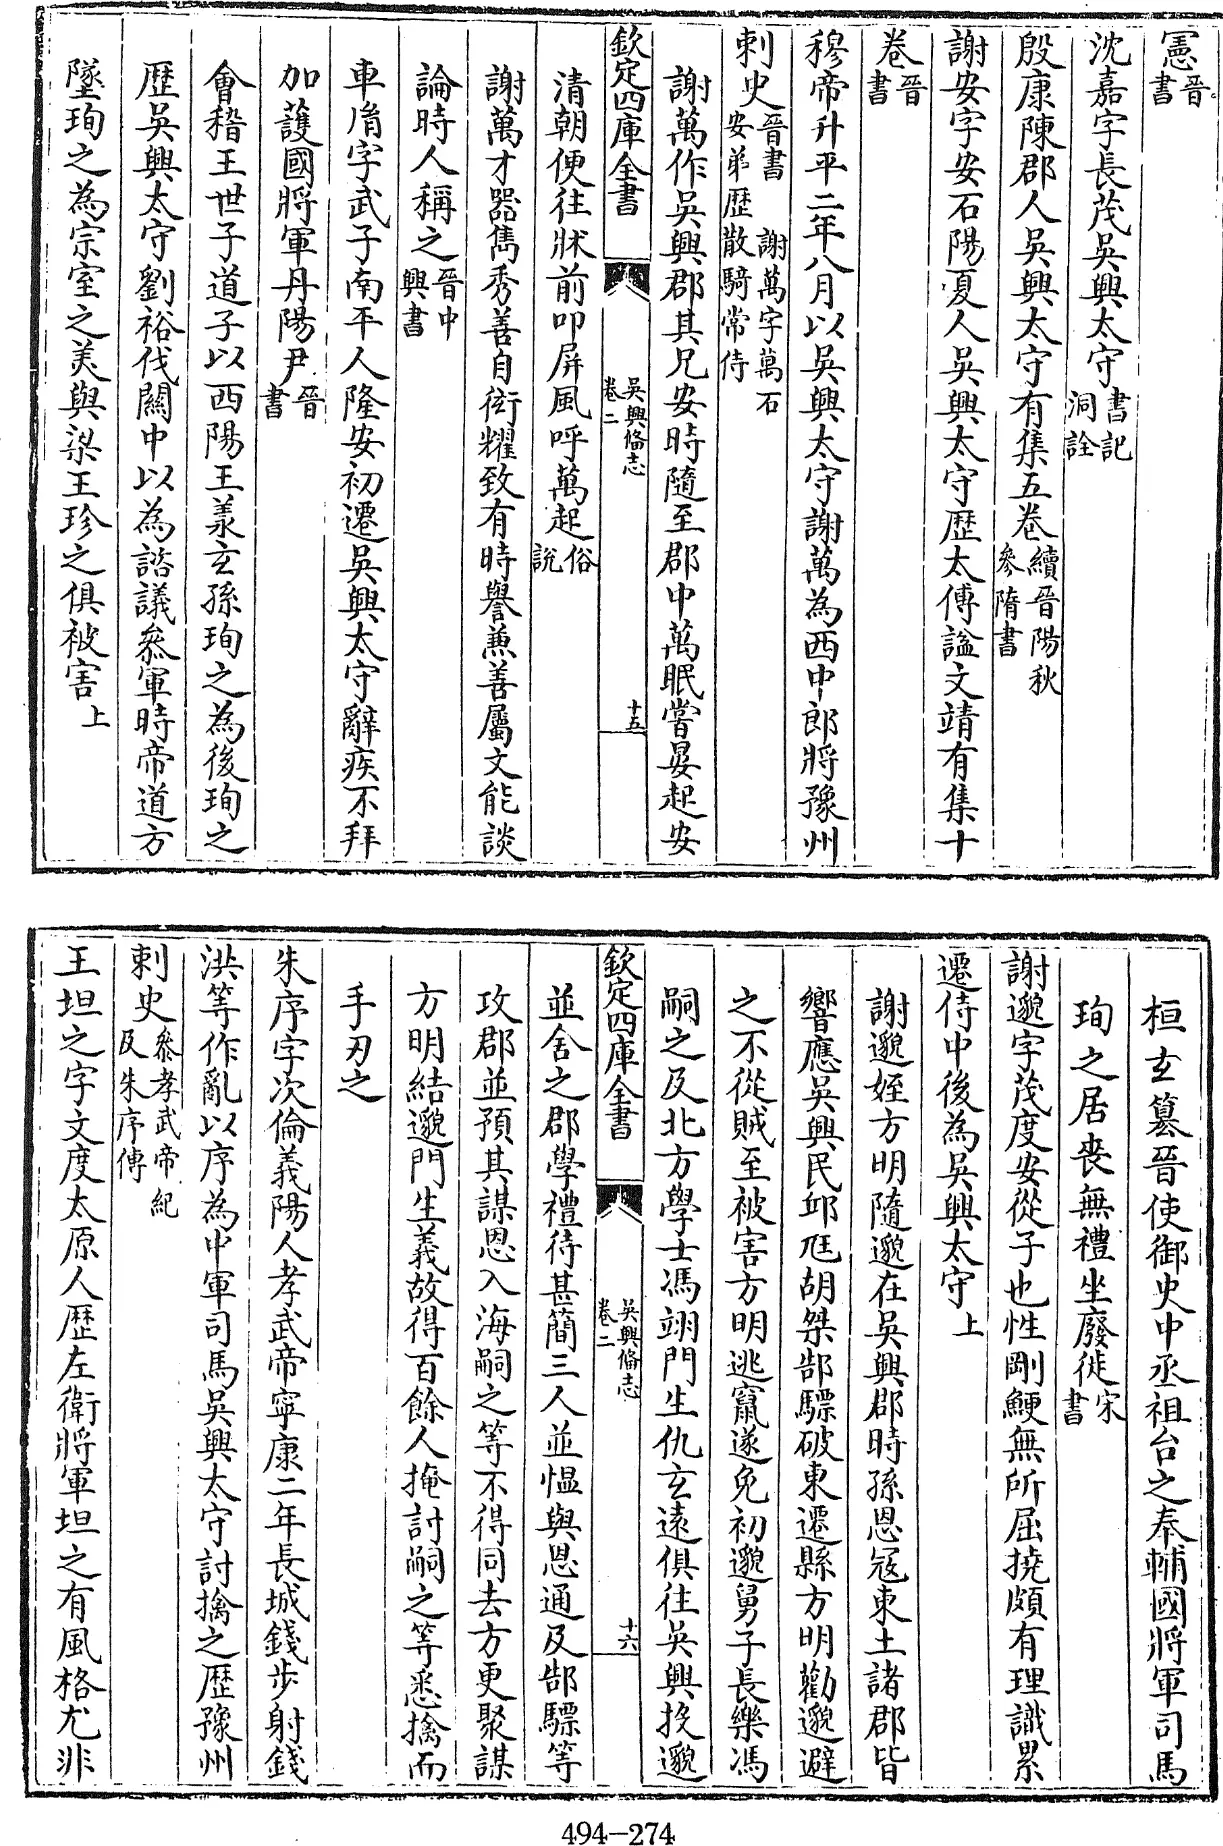 憲晉書
沈嘉字長茂吳興太守書記洞詮
殷康陳郡人吳興太守有集五卷續晉陽秋參隋書
謝安字安石陽夏人吳興太守歷太傅諡文靖有集十
卷晉書
穆帝升平二年八月以吳興太守謝萬為西中郎將豫州
刺史晉書 謝萬字萬石安弟歷散騎常侍
謝萬作吳興郡其兄安時隨至郡中萬眠嘗晏起安
欽定四庫全書 吳興備志 卷二 十五
清朝便往牀前叩屏風呼萬起俗說
謝萬才器雋秀善自衒耀致有時譽兼善屬文能談
論時人稱之晉中興書
車胤字武子南平人隆安初遷吳興太守辭疾不拜
加護國將軍丹陽尹晉書
會稽王世子道子以西陽王羕玄孫珣之為後珣之
歷吳興太守劉裕伐關中以為諮議叅軍時帝道方
墜珣之為宗室之美與梁王珍之俱被害上
桓玄篡晉使御史中丞祖台之奉輔國將軍司馬
珣之居喪無禮坐廢徙宋書
謝邈字茂度安從子也性剛鯁無所屈撓頗有理識累
遷侍中後為吳興太守上
謝邈姪方明隨邈在吳興郡時孫恩寇東土諸郡皆
響應吳興民邱尫胡桀郜驃破東遷縣方明勸邈避
之不從賊至被害方明逃竄遂免初邈舅子長樂馮
嗣之及北方學士馮翊門生仇玄遠俱往吳興投邈
欽定四庫全書 吳興備志 卷二 十六
並舍之郡學禮待甚簡三人並愠與恩通及郜驃等
攻郡並預其謀恩入海嗣之等不得同去方更聚謀
方明結邈門生義故得百餘人掩討嗣之等悉擒而
手刃之
朱序字次倫義陽人孝武帝寧康二年長城錢步射錢
洪等作亂以序為中軍司馬吳興太守討擒之歷豫州
刺史叅孝武帝紀及朱序傳
王坦之字文度太原人歷左衛將軍坦之有風格尤非
494-274